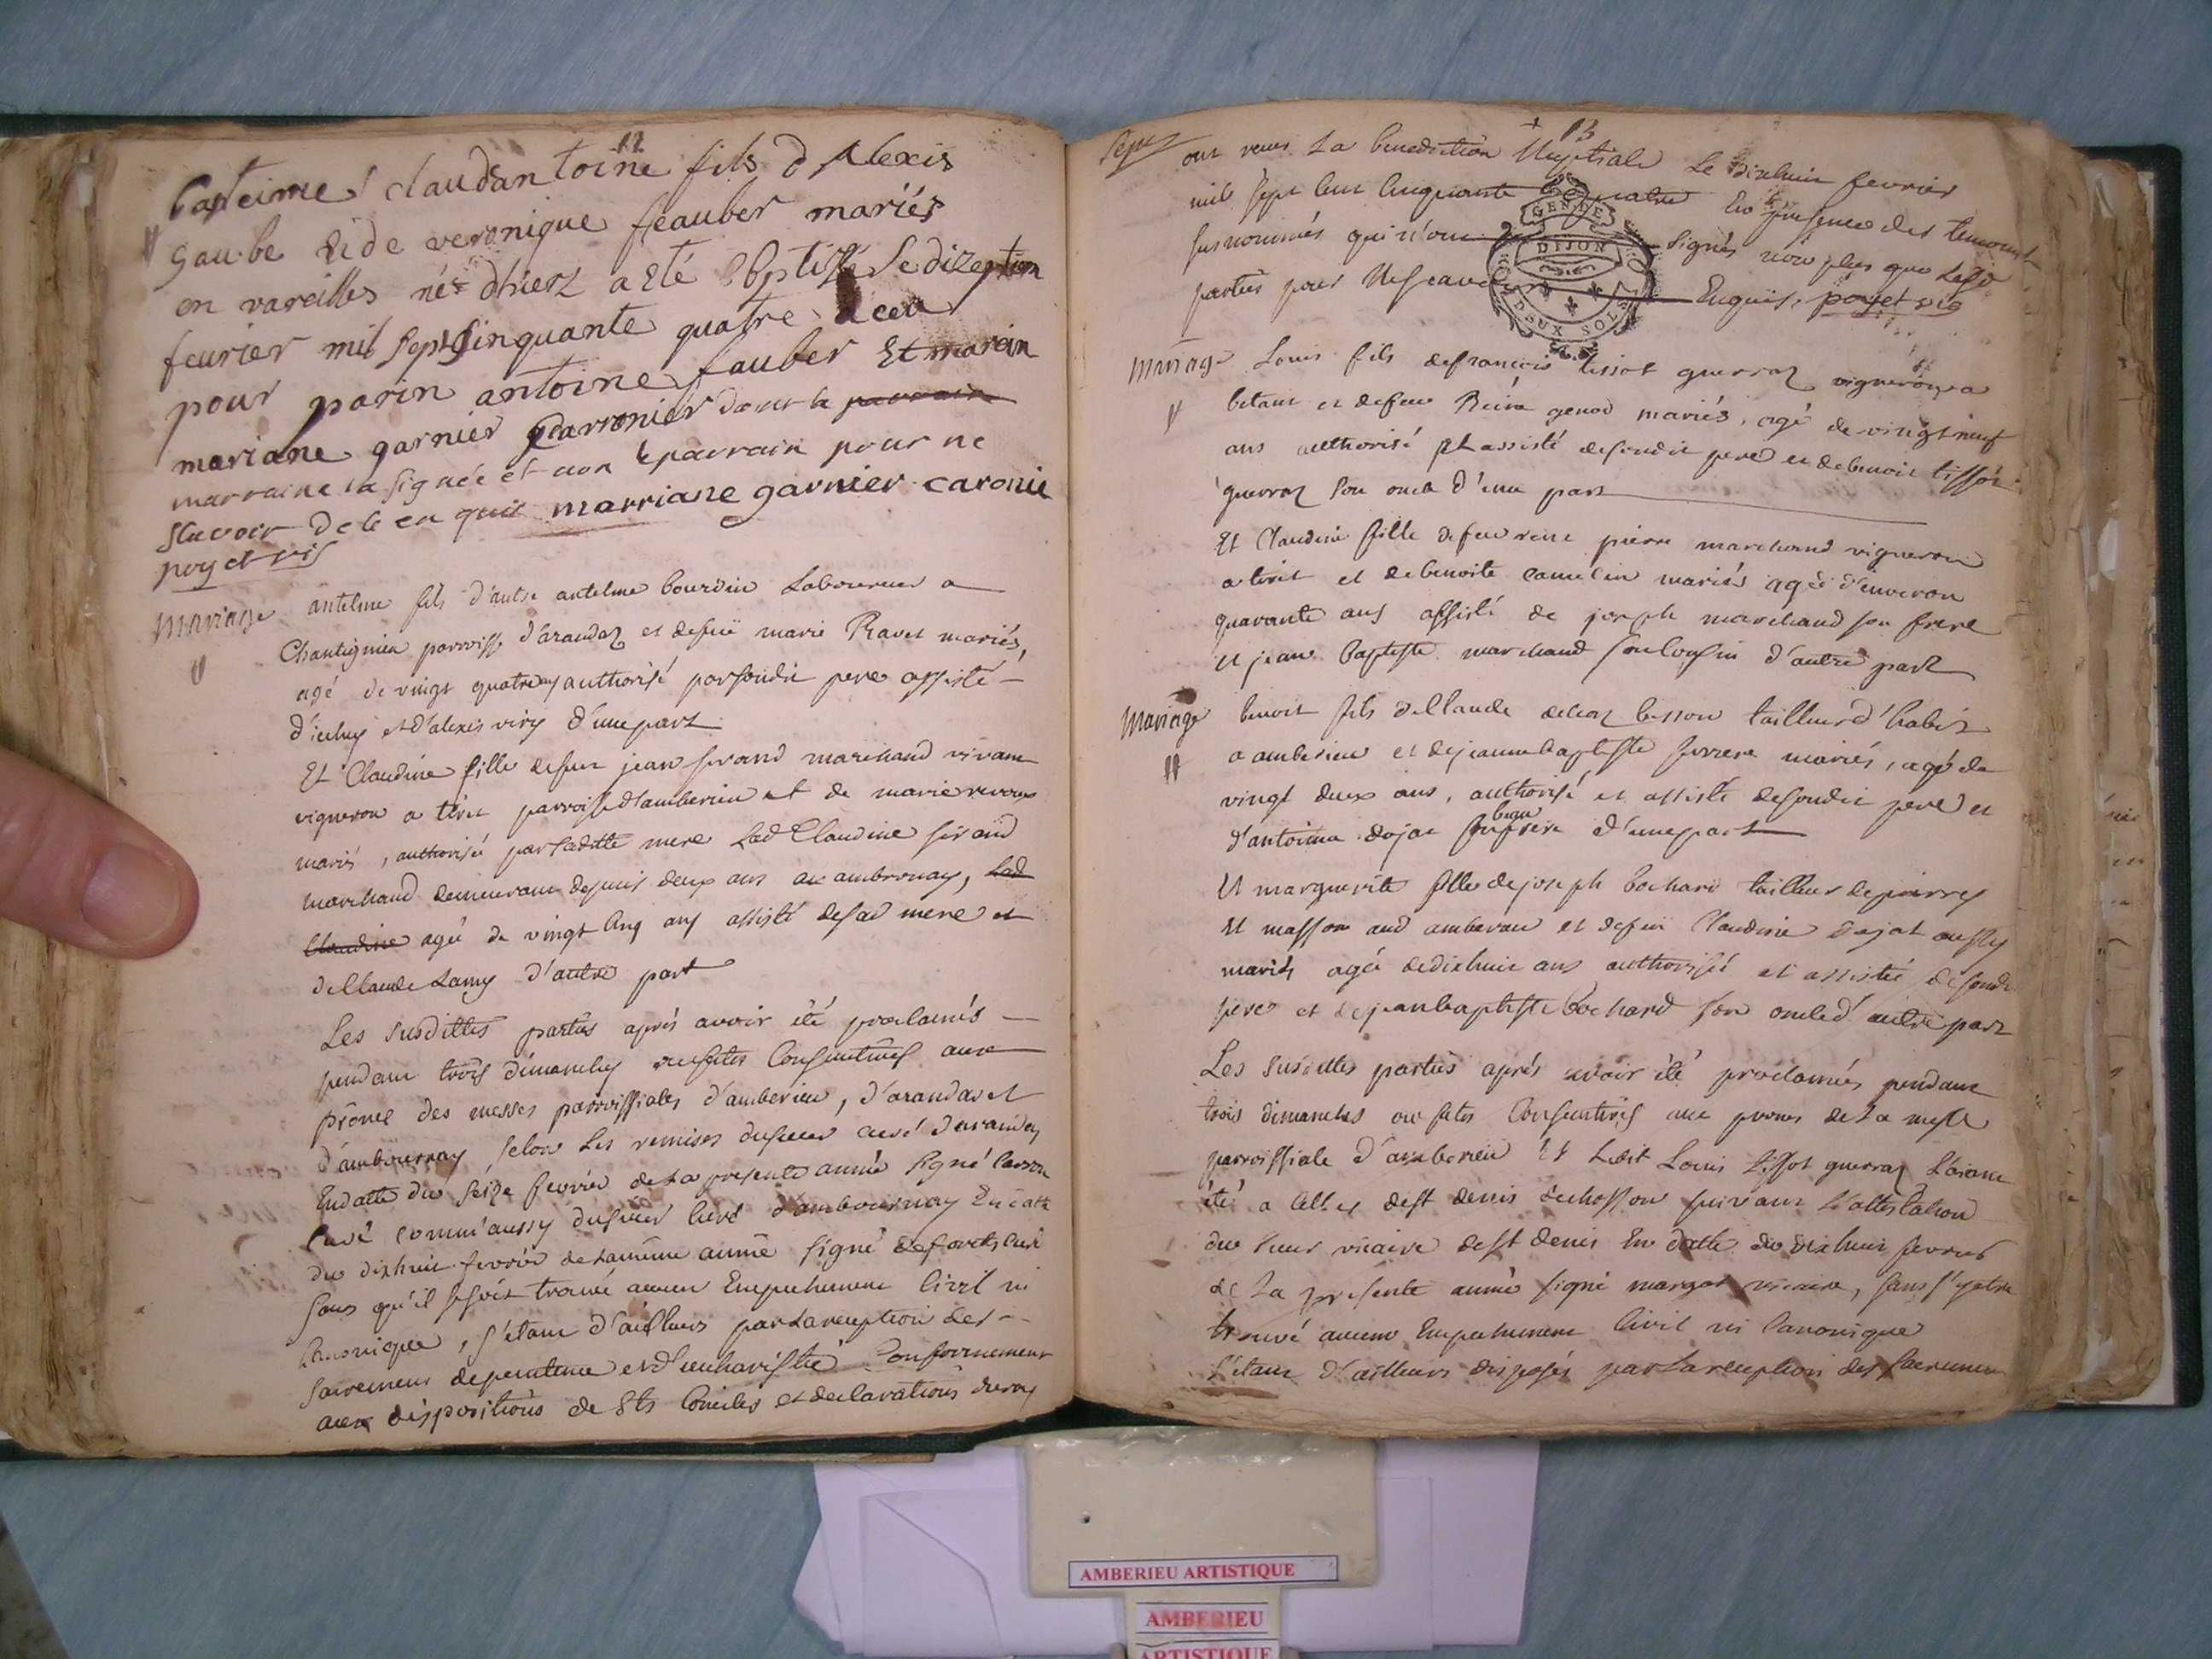 12
Bapteime claudantoine fils d Alexis
gaube et de veronique feauber mariés
en vareilles né d'hierz a eté Bptissé le dizeption
feurier mil sept sinquante quatre a ceu
pour parin antoine fauber Et marain
mariane garnier garronier dont la parrain
marraine la signée et non le parrain pour ne
scavoir de le en quit marriane garnier caronie
poyet vis
Mariage antelme fils d'autre antelme bourdin Laboureur a
Chantignien parroisse d'arandaz et defue marie Ravet mariés,
agé de vingt quatre ans authorisé par sondit pere assisté
d'iceluy et d'alexis viry d'une part
Et Claudine fille defeu jean sirand marchand vivant
vigneron a tiret parroisse d'amberieu et de marie revoux
mariés, authorisée par laditte mere Lad Claudine sirand
marchand demeurant depuis deux ans au ambronay, Lad
Claudine agée de vingt cinq ans assisté de sad mere et
de Claude Lamy d'autre part
Les susdittes parties aprés avoir été proclamés
pendant trois dimanches ou festes Consecutives aux
prônes des messes parroissiales d'amberieu, d'arandas et
d'ambournay selon les remises du sieur curé d'arandas
En datte du seize fevrier de la presente année signé Carron
curé comme aussy du sieur curé d'ambournay En datte
du dixhuit fevrier de la même année signé deforets curé
sans qu'il se soit trouvé aucun Empechement Civil ni
Canonique, s'étant d'ailleurs par la reception des
sacremens de penitence et d'eucharistie Conformement
aux dispositions de Sts Conciles et declarations du roy
13
ont receu La benediction Nuptiale Le dixhuit fevrier
mil sept cent cinquante quatre En presence des temoins
susnommés qui n'ont signés non plus que lesd
parties pour ne scavoir Enquis. poyet vic
GEN DE
DIJON
DEUX SOLS
Mariage Louis fils de francois tissot guerraz vigneron a
betant et defeue Reine genod mariés, agé de vingt neuf
ans authorisé et assisté de sondit pere et de benoit tissot
guerraz son oncle d'une part
Et Claudine fille de feu sieur pierre marchand vigneron
a tiret et de benoite camelin mariés agée d'environ
quarante ans assisté de joseph marchand son frere
et jean baptiste marchand son cousin d'autre part
Mariage benoit fils de Claude dehaz besson tailleur d'habits
a amberieu et de jeanne baptiste ferrere mariés, agé de
vingt deux ans, authorisé et assisté de sondit pere et
d'antoine dojat son beau frere d'une part
Et marguerite fille de joseph bochard tailleur de pierres
et masson aud amberieu et defue Claudine dojat aussy
mariés agée de dixhuit ans authorisée et assistée de sondit
pere et de jean baptiste bochard son oncle d'autre part
Les susdittes parties aprés avoir été proclamées pendant
trois dimanches ou fetes Consecutives aux prones de la messe
parroissiale d'amberieu Et Ledit Louis tissot guerraz L'aiant
été a celles de st denis de chosson suivant L'attestation
du sieur vicaire de st denis En datte du dixhuit fevrier
de La presente année signé margot vicaire, sans s'y etre
trouvé aucun Empechement Civil ni Canonique
s'étant d'ailleurs disposés par la reception des sacremens
AMBERIEU ARTISTIQUE
AMBERIEU
ARTISTIQUE